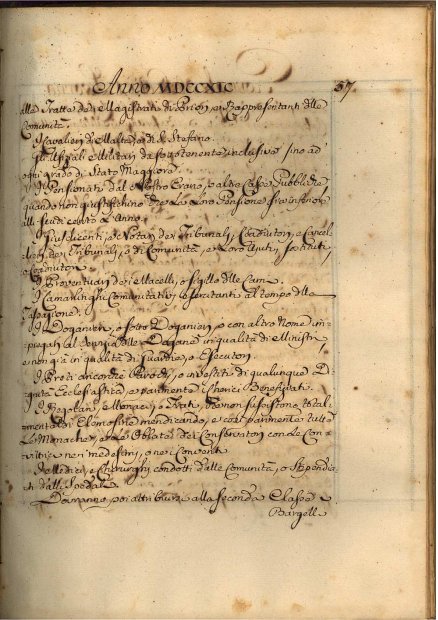 Anno MDCCXIC 57
alle Tratte dei Magistrati di Priori, e Rappresentanti delle
Comunità.
I Cavalieri di Malta, e di S. Stefano.
Gli Ufiziali Militari da Sottotenente inclusive sino ad
ogni grado di Stato Maggiore.
I Pensionati dal Nostro Erario, o altre Casse Pubbliche
quando non giustifichino che la Loro Pensione sia inferiore
alli scudi cento l'Anno.
I Giusdicenti, e Notari dei Tribunali, Coadiutori, e Cancel-
lieri dei Tribunali, o di Comunità, e Loro Ajuti, Sostituti
e
I Proventuari dei Macelli, o sigillo delle Carni.
I Camarlinghi Comunitativi esercitanti al tempo della
Tassazione.
I Doganieri, o sotto Doganieri, o con altro Nome im-
piegati al servizio delle Dogane in qualità di Ministri
e non già in qualità di Guardie, o Esecutori.
I Preti ancorchè Parochi, o investiti di qualunque Di-
gnità Ecclesiastica, e parimente i Cherici Beneficiati.
I Regolari, e Monaci, o Frati, che non sussistono total-
mente di Elemosine mendicando, e così parimente tutte
Le Monache, e le Oblate dei Conservatori con le Con-
vittrici nei medesimi, o nei Conventi.
I Medici, e Chirurghi condotti dalle Comunità, o stipendia-
ti dalli Spedali.
Doveranno poi attribuirsi alla seconda Classe
Bargelli